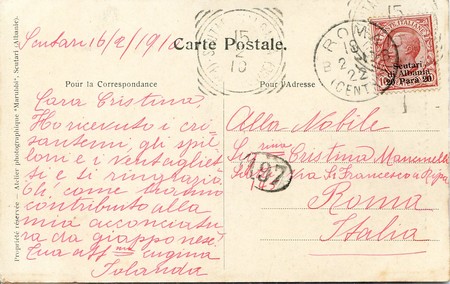 Scutari 16/2/910
Carte Postale.
Pour la Correspondance
Pour l'Adresse
Cara Cristina,
Ho ricevuto i cri-
santemi, gli spil-
loni e i ventagliet-
ti e si ringrazio
Oh! come hanno
contribuito alla
mia acconciatu-
ra da giapponese!
Tua aff.ma cugina
Iolanda
Alla Nobile
Cristina
Via S. Francesco a Ripa
Roma
Italia
187
ROMA
(CENTRO)
15
2
10
Scutari
di Albania
20 Para 20
Propriété réservée — Atelier photographique "Marubbi", Scutari (Albanie).